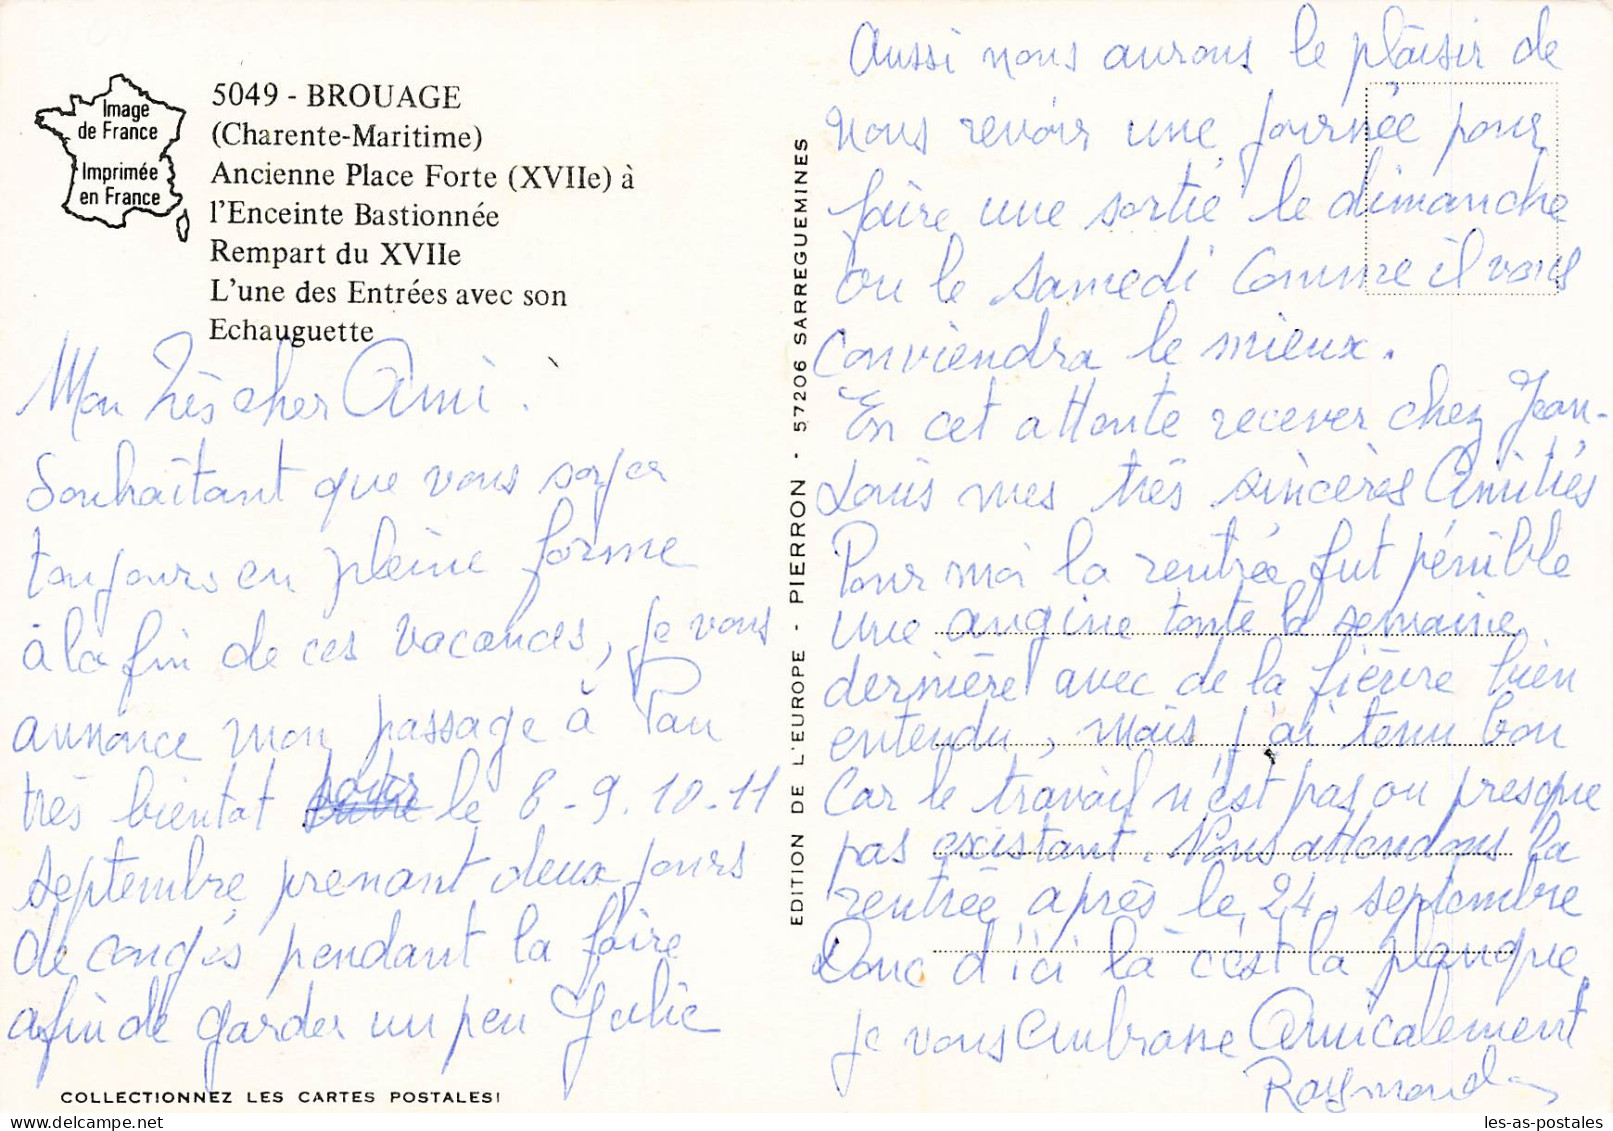 Image
de France
Imprimée
en France
5049 - BROUAGE
(Charente-Maritime)
Ancienne Place Forte (XVIIe) à
l'Enceinte Bastionnée
Rempart du XVIIe
L'une des Entrées avec son
Echauguette
Mon Très cher Ami.
Souhaitant que vous soyez
toujours en pleine forme
à la fin de ces vacances, je vous
annonce mon passage à Pau
très bientat le 8-9.10-11
septembre prenant deux jours
de congés pendant la foire
afin de garder un peu Julie
EDITION DE L'EUROPE - PIERRON - 57206 SARREGUEMINES
Aussi nous aurons le plaisir de
nous revoir une journée pour
faire une sortie le dimanche
ou le samedi comme il vous
conviendra le mieux.
En cet attente recever chez Jean-
Louis mes très sincères Amitiés
Pour moi la rentrée fut pénible
une angine toute la semaine
dernière avec de la fièvre bien
entendu, mais j'ai tenu bon
car le travail n'est pas ou presque
pas existant. Nous attendons la
rentrée après le 24 septembre
Donc d'ici là c'est la planque
je vous embrasse Amicalement
Raymond
COLLECTIONNEZ LES CARTES POSTALES!
les-as-postales